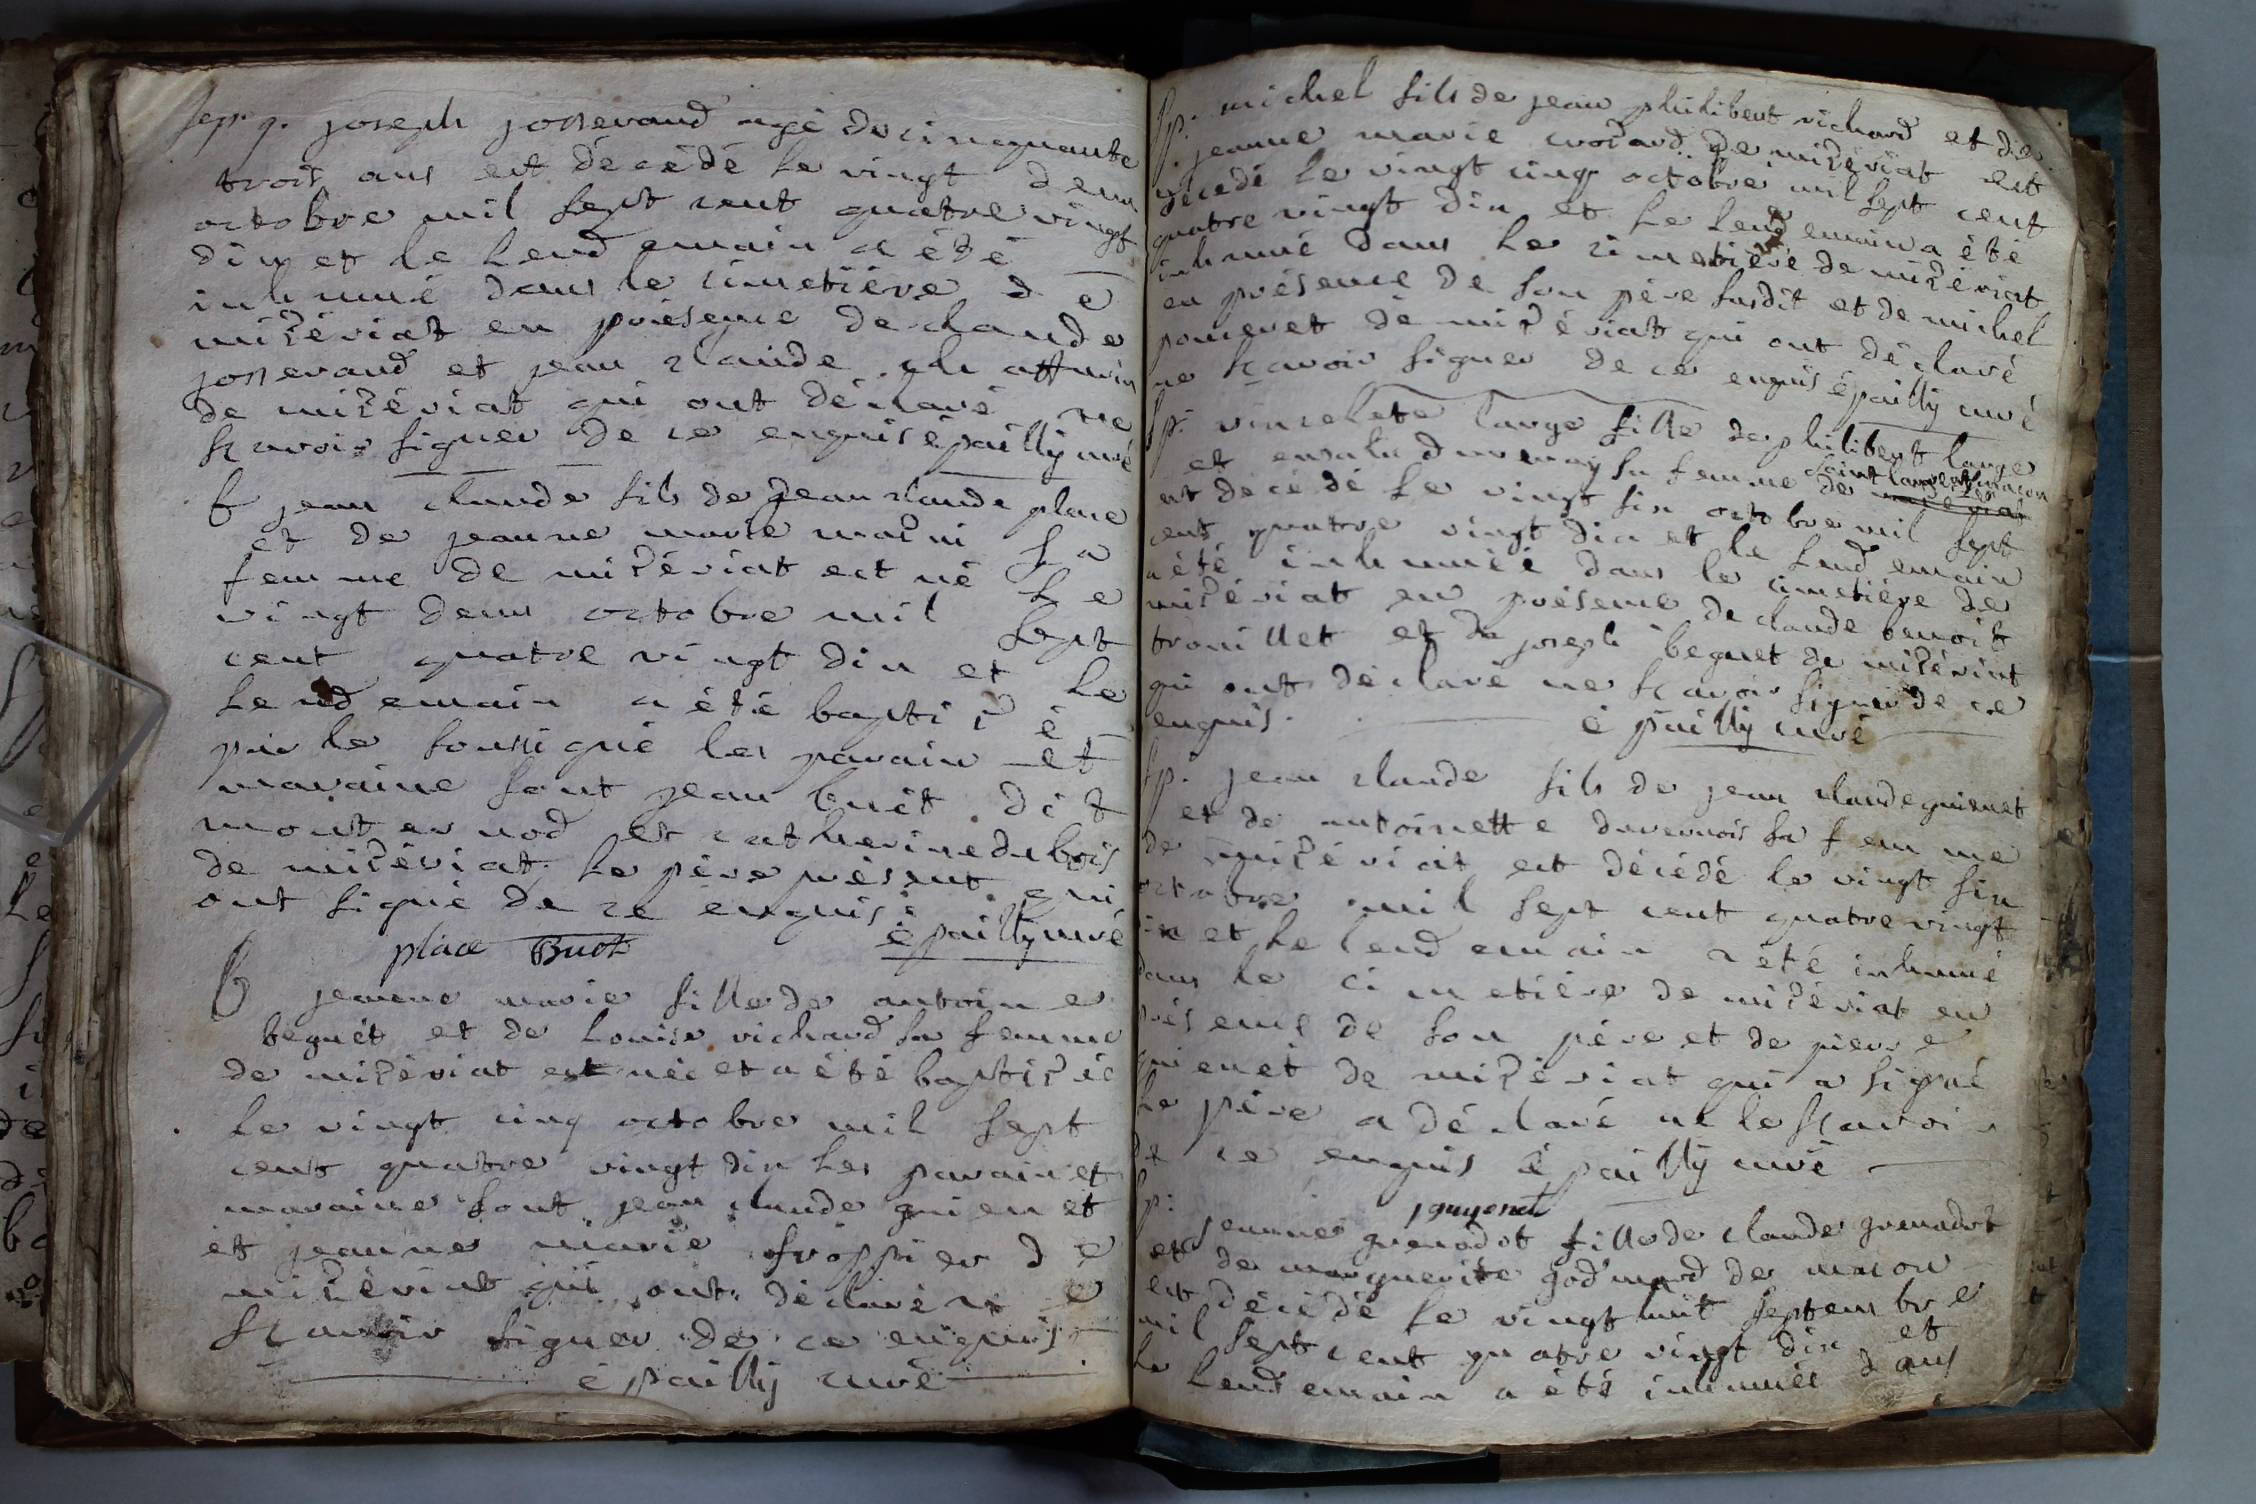 sepr. g. joseph josserand agé de cinquante
trois ans est décédé le vingt deux
octobre mil sept cent quatre vingt
dix et le lendemain a été
inhumé dans le cimetière de
mizériat en présence de claude
josserand et jean claude
de mizériat qui ont déclaré ne
sçavoir signer de ce enquis é pailly curé
b jean claude fils de jean claude place
et de jeanne marie sa
femme de mizériat est né le
vingt deux octobre mil sept
cent quatre vingt dix et le
lendemain a été baptizé
par le soussigné les parain et
maraine sont jean buet dit
et catherine dubois
de mizériat le père présent qui
ont signé de ce enquis
place Buet é pailly curé
b jeanne marie fille de antoine
beguet et de louise richard sa femme
de mizériat est née et a été baptizée
le vingt cinq octobre mil sept
cent quatre vingt dix les parain et
maraine sont jean claude guienet
et jeanne marie froppier de
mizériat qui ont déclaré ne
sçavoir signer de ce enquis
é pailly curé
sp. michel fils de jean philibert richard et de
jeanne marie de mizériat est
décédé le vingt cinq octobre mil sept cent
quatre vingt dix et le lendemain a été
inhumé dans le cimetière de mizériat
en présence de son père susdit et de michel
poncevet de mizériat qui ont déclaré
ne sçavoir signer de ce enquis é pailly curé
sp. vincelete large fille de philibert large
et duvernay sa femme de saint laurent les macon
est decédé le vingt six octobre mil sept
cent quatre vingt dix et le lendemain
a été inhumée dans le cimetière de
mizériat en présence de claude benoit
trouillet et de joseph beguet de mizériat
qui ont déclaré ne sçavoir signer de ce
enquis. é pailly curé
sp. jean claude fils de jean claude guienet
et de antoinette duvernois sa femme
de mizériat est décédé le vingt six
octobre mil sept cent quatre vingt
dix et le lendemain a été inhumé
dans le cimetière de mizériat en
présence de son père et de pierre
guienet de mizériat qui a signé
le père a déclaré ne le sçavoir
de ce enquis é pailly curé
p guyenet
sp: jeanne grenadot fille de claude grenadot
et de marguerite godmard de macon
est décédé le vingt huit septembre
mil sept cent quatre vingt dix et
le lendemain a été inhumée dans